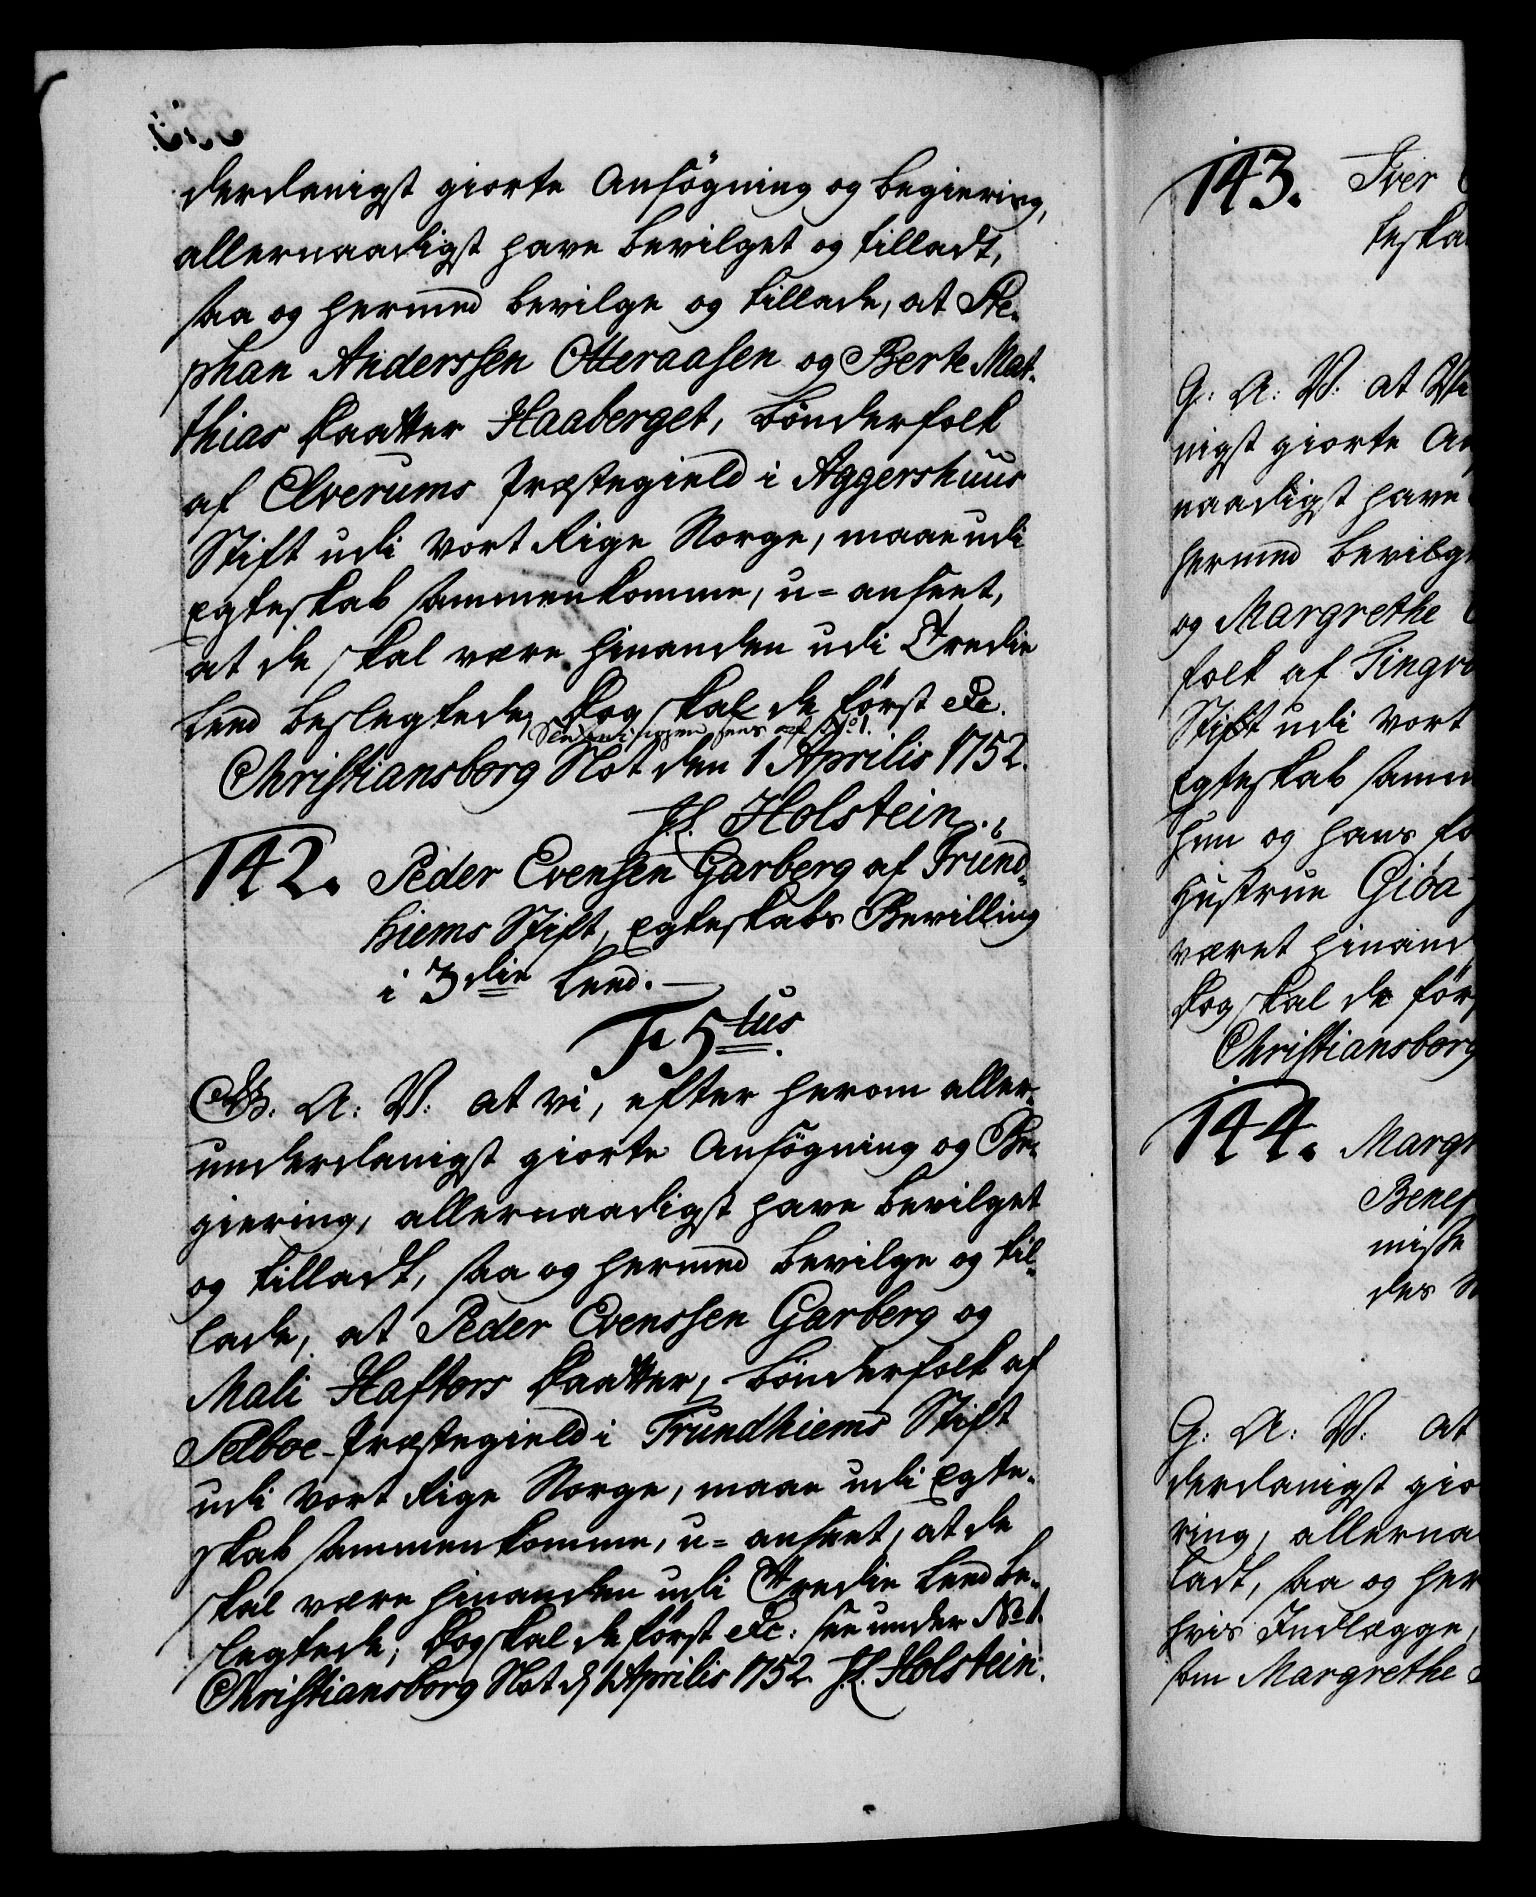 derdanigst giorte Ansøgning og begiering,
allernaadigst have bevilget og tilladt,
saa og hermed bevilge og tillade, at Ste-
phan Anderssen Otteraasen og Berte Mat-
thias Daatter Haaberget, bønderfolk
af Elverums Præstegield i Aggershuus
Stift udi Vort Rige Norge, maae udi
Egteskab sammenkomme, u=anseet,
at de skal være hinanden udi Tredie
Leed beslegtede, Dog skal de først &c.
af No. 1.
Christiansborg Slot den 1 Aprilis 1752.
J. L. Holstein.
142. Peder Evensen Garberg af Trund-
hiems Stift, Egteskabs Bevilling
i 3die Leed. —
F 5tus.
G. A: V: at vi, efter herom aller-
underdanigst giorte Ansøgning og Be-
giering, allernaadigst have bevilget
og tilladt, saa og hermed bevilge og til-
lade, at Peder Evenssen Garberg og
Mali Haftors Daatter, bønderfolk af
Selboe Præstegield i Trundhiems Stift
udi Vort Rige Norge, maae udi Egte-
skab sammenkomme, u=anseet, at de
skal være hinanden udi Tredie Leed be-
slegtede, Dog skal de først &c: see under No 1.
Christiansborg Slot d. 1 Aprilis 1752. J. L. Holstein.
143. Iver
teska
G: A: V: at Vi
nigst giorte An
naadigst have
hermed bevilge
og Margrethe
folk af Tingvo
Stift udi Vort
Egteskab samm
hun og hans fo
Hustrue Giøa
været hinand
Dog skal de før
Christiansborg
144. Margr
Benef
misse
des
G: A: V: at
derdanigst gio
ring, allerna
ladt, saa og her
hvis Indlægge,
som Margrethe